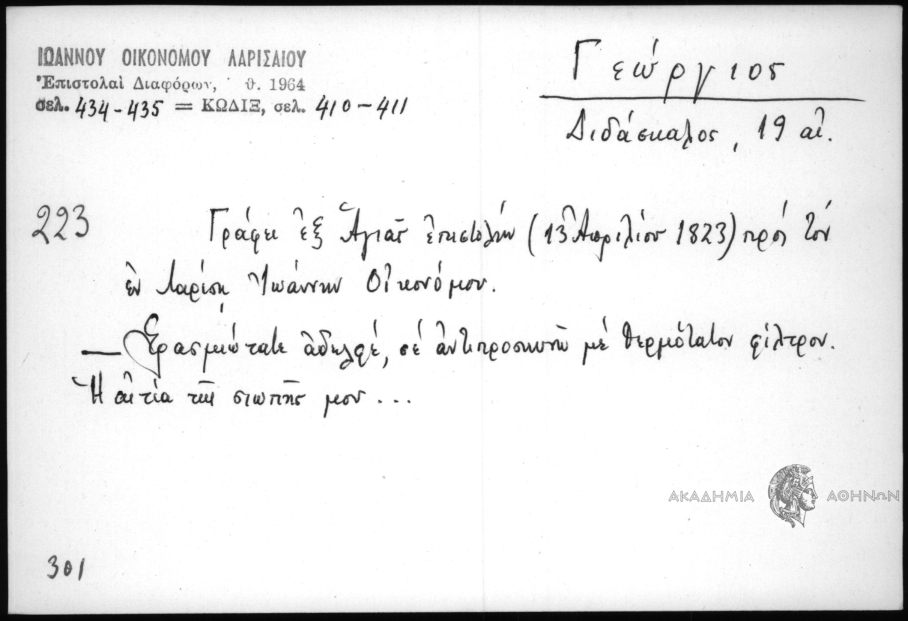 ΙΩΑΝΝΟΥ ΟΙΚΟΝΟΜΟΥ ΛΑΡΙΣΑΙΟΥ
Ἐπιστολαὶ Διαφόρων, θ. 1964
σελ. 434-435 = ΚΩΔΙΞ, σελ. 410-411
Γεώργιος
Διδάσκαλος, 19 αἰ.
223 Γράφει ἐξ Ἁγιᾶς ἐπιστολήν (13 Ἀπριλίου 1823) πρός τόν
ἐν Λαρίσῃ Ἰωάννην Οἰκονόμου.
— Ἐρασμιώτατε ἀδελφέ, σέ ἀντιπροσκυνῶ μέ θερμότατον φίλτρον.
Ἡ αἰτία τῆς σιωπῆς μου ...
ΑΚΑΔΗΜΙΑ ΑΘΗΝΩΝ
301